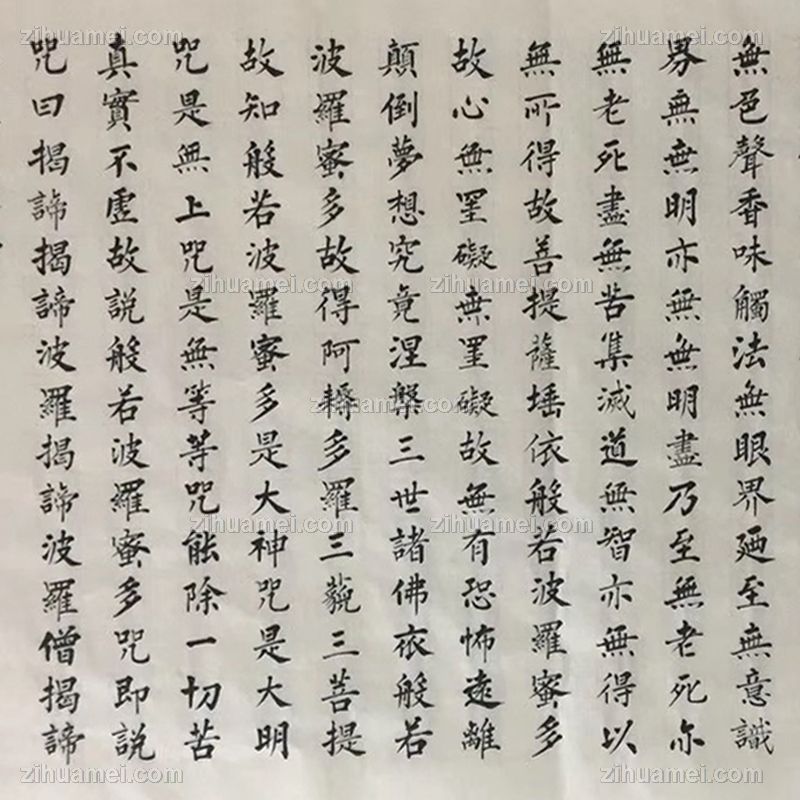 無色聲香味觸法無眼界廼至無意識
界無無明亦無無明盡乃至無老死亦
無老死盡無苦集滅道無智亦無得以
無所得故菩提薩埵依般若波羅蜜多
故心無罣礙無罣礙故無有恐怖遠離
顛倒夢想究竟涅槃三世諸佛依般若
波羅蜜多故得阿耨多羅三藐三菩提
故知般若波羅蜜多是大神咒是大明
咒是無上咒是無等等咒能除一切苦
真實不虛故説般若波羅蜜多咒即説
咒曰揭諦揭諦波羅揭諦波羅僧揭諦
zihuamei.com zihuamei.com zihuamei.com
zihuamei.com zihuamei.com zihuamei.com
zihuamei.com zihuamei.com zihuamei.com
zihuamei.com zihuamei.com zihuamei.com